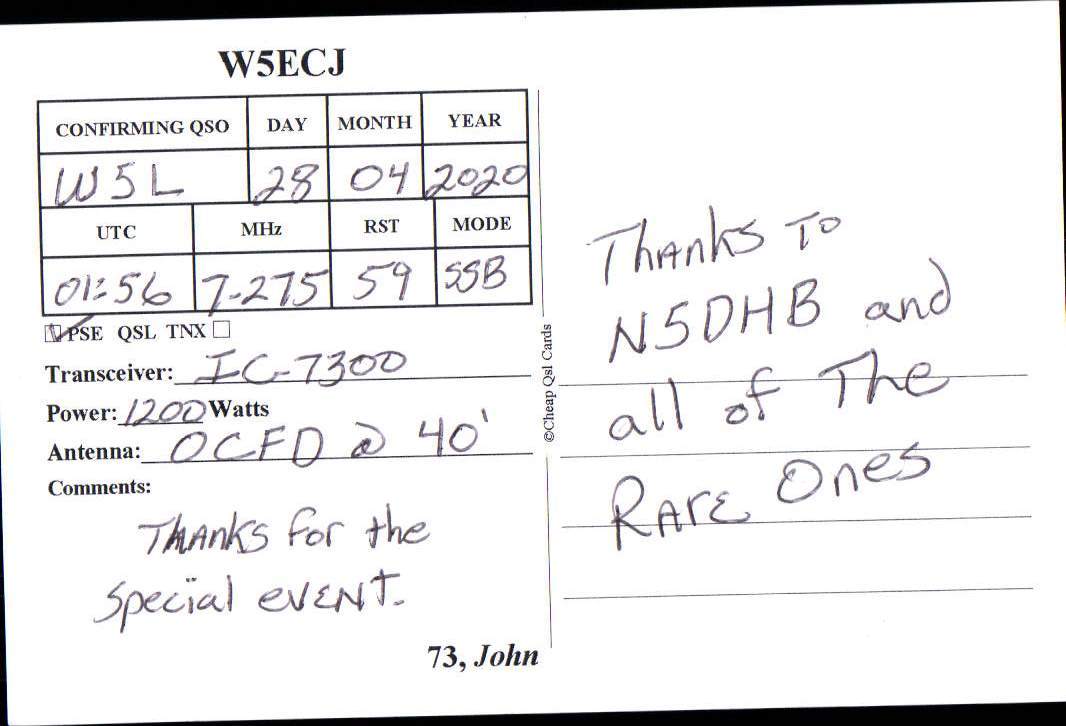 W5ECJ
CONFIRMING QSO DAY MONTH YEAR
W5L 28 04 2020
UTC MHz RST MODE
01:56 7-275 59 SSB
PSE QSL TNX
Transceiver: IC-7300
Power: 1200 Watts
Antenna: OCFD @ 40'
Comments:
THANKS for the
special EVENT.
73, John
©Cheap Qsl Cards
THANKS TO
N5DHB and
all of The
RARE Ones